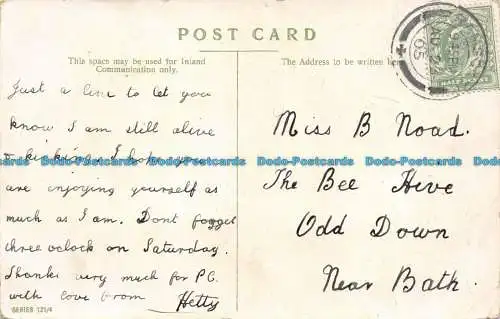 POST CARD
This space may be used for Inland
Communication only.
The Address to be written here
Just a line to let you
know I am still alive
& kicking. I hope you
are enjoying yourself as
much as I am. Dont forget
three oclock on Saturday.
Thanks very much for P.C.
with love from Hetty
SERIES 121/4
Miss B Noad.
The Bee Hive
Odd Down
Near Bath.
AU 2
05
HALFPENNY
Dodo-Postcards Dodo-Postcards Dodo-Postcards Dodo-Postcards Dodo-Postcards